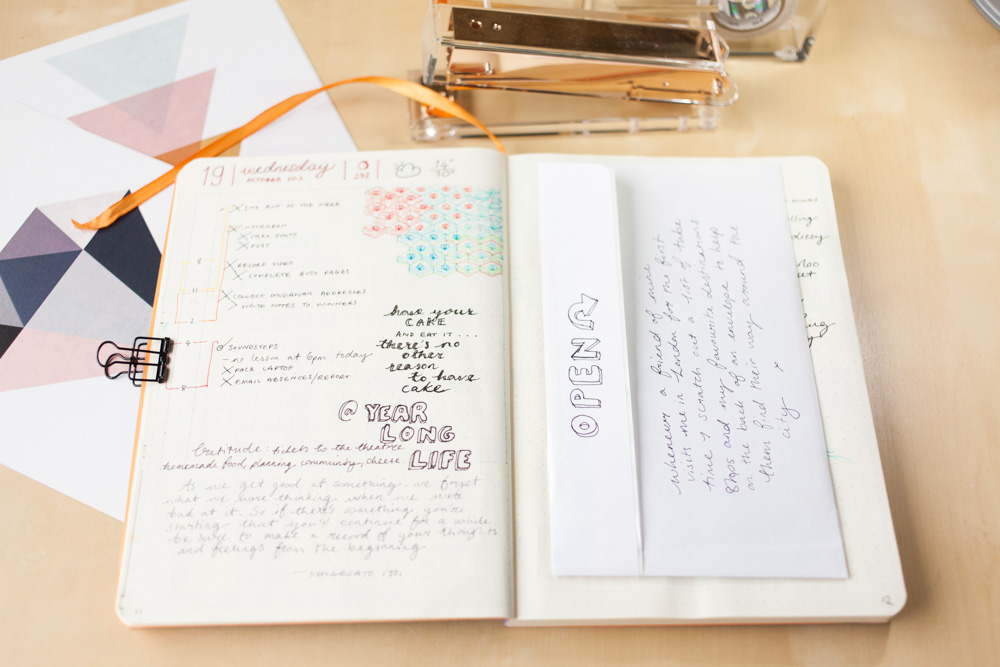 19 | wednesday | 293 | 14° 10°
OCTOBER
8
11
2
4
8
INSTAGRAM
TAKE PHOTO
POST
RECORD VIDEO
COMPLETE BUJO PAGES
COLLECT GIVEAWAY ADDRESSES
WRITE NOTES TO WINNERS
SOUNDSTEPS
- no lesson at 6pm today
PACK LAPTOP
EMAIL ABSENCES/REPORT
have your
CAKE
AND EAT IT ...
there's no
other
reason
to have
cake
@ YEAR
LONG
LIFE
Gratitude: tickets to the theatre
homemade food, planning community, cheese
As we get good at something, we forget
what we were thinking when we were
bad at it. So if there's something you're
starting that you'll continue for a while
be sure to make a record of your thoughts
and feelings from the beginning
11
OPEN
Whenever a friend of mine
visits me in London for the first
time I scratch out a list of take
Shops and my favourite destinations
on the back of an envelope to help
them find their way around the
city x
12